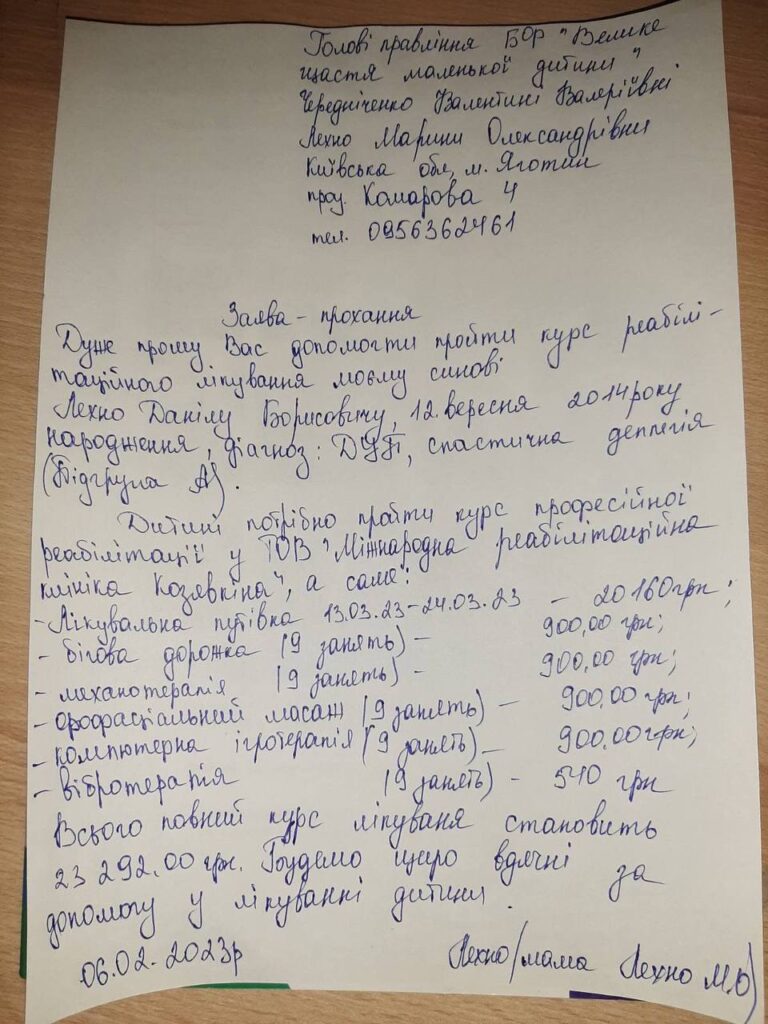 Голові правління БОР "Велике
щастя маленької дитини"
Чередніченко Валентині Валеріївні
Лехно Марини Олександрівни
Київська обл, м. Яготин
пров. Комарова 4
тел. 0956362461
Заява - прохання
Дуже прошу Вас допомогти пройти курс реабілі-
таційного лікування моєму синові
Лехно Данілу Борисовичу, 12 вересня 2014 року
народження, діагноз: ДЦП, спастична деплегія
(Підгрупа А).
Дитині потрібно пройти курс професійної
реабілітації у ТОВ "Міжнародна реабілітаційна
клініка Козявкіна", а саме:
- Лікувальна путівка 13.03.23-24.03.23 - 20160грн;
- бігова дорожка (9 занять) - 900,00 грн;
- механотерапія (9 занять) - 900,00 грн;
- орофасціальний масаж (9 занять) - 900,00 грн;
- компютерна ігротерапія (9 занять) - 900,00грн;
- вібротерапія (9 занять) - 540 грн
Всього повний курс лікуваня становить
23 292,00 грн. Будемо щиро вдячні за
допомогу у лікуванні дитини.
06.02-2023р Лехно/мама Лехно М.О)